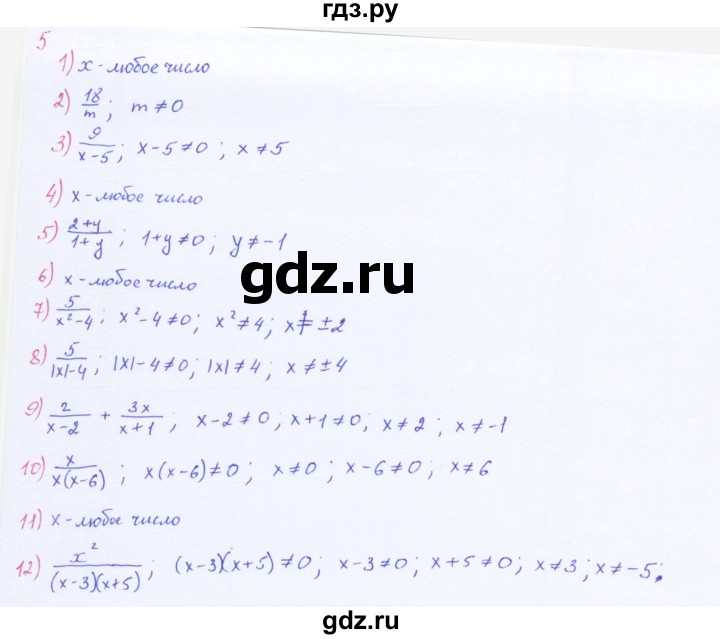 гдз.ру
5
1) x - любое число
2) 18/m ; m ≠ 0
3) 9/(x-5) ; x-5 ≠ 0 ; x ≠ 5
4) x - любое число
5) (2+y)/(1+y) ; 1+y ≠ 0 ; y ≠ -1
gdz.ru
6) x - любое число
7) 5/(x²-4) ; x²-4 ≠ 0 ; x² ≠ 4 ; x ≠ ±2
8) 5/(|x|-4) ; |x|-4 ≠ 0 ; |x| ≠ 4 ; x ≠ ±4
9) 2/(x-2) + 3x/(x+1) ; x-2 ≠ 0 ; x+1 ≠ 0 ; x ≠ 2 ; x ≠ -1
10) x/(x(x-6)) ; x(x-6) ≠ 0 ; x ≠ 0 ; x-6 ≠ 0 ; x ≠ 6
11) x - любое число
12) x²/((x-3)(x+5)) ; (x-3)(x+5) ≠ 0 ; x-3 ≠ 0 ; x+5 ≠ 0 ; x ≠ 3 ; x ≠ -5 ;
gdz.ru